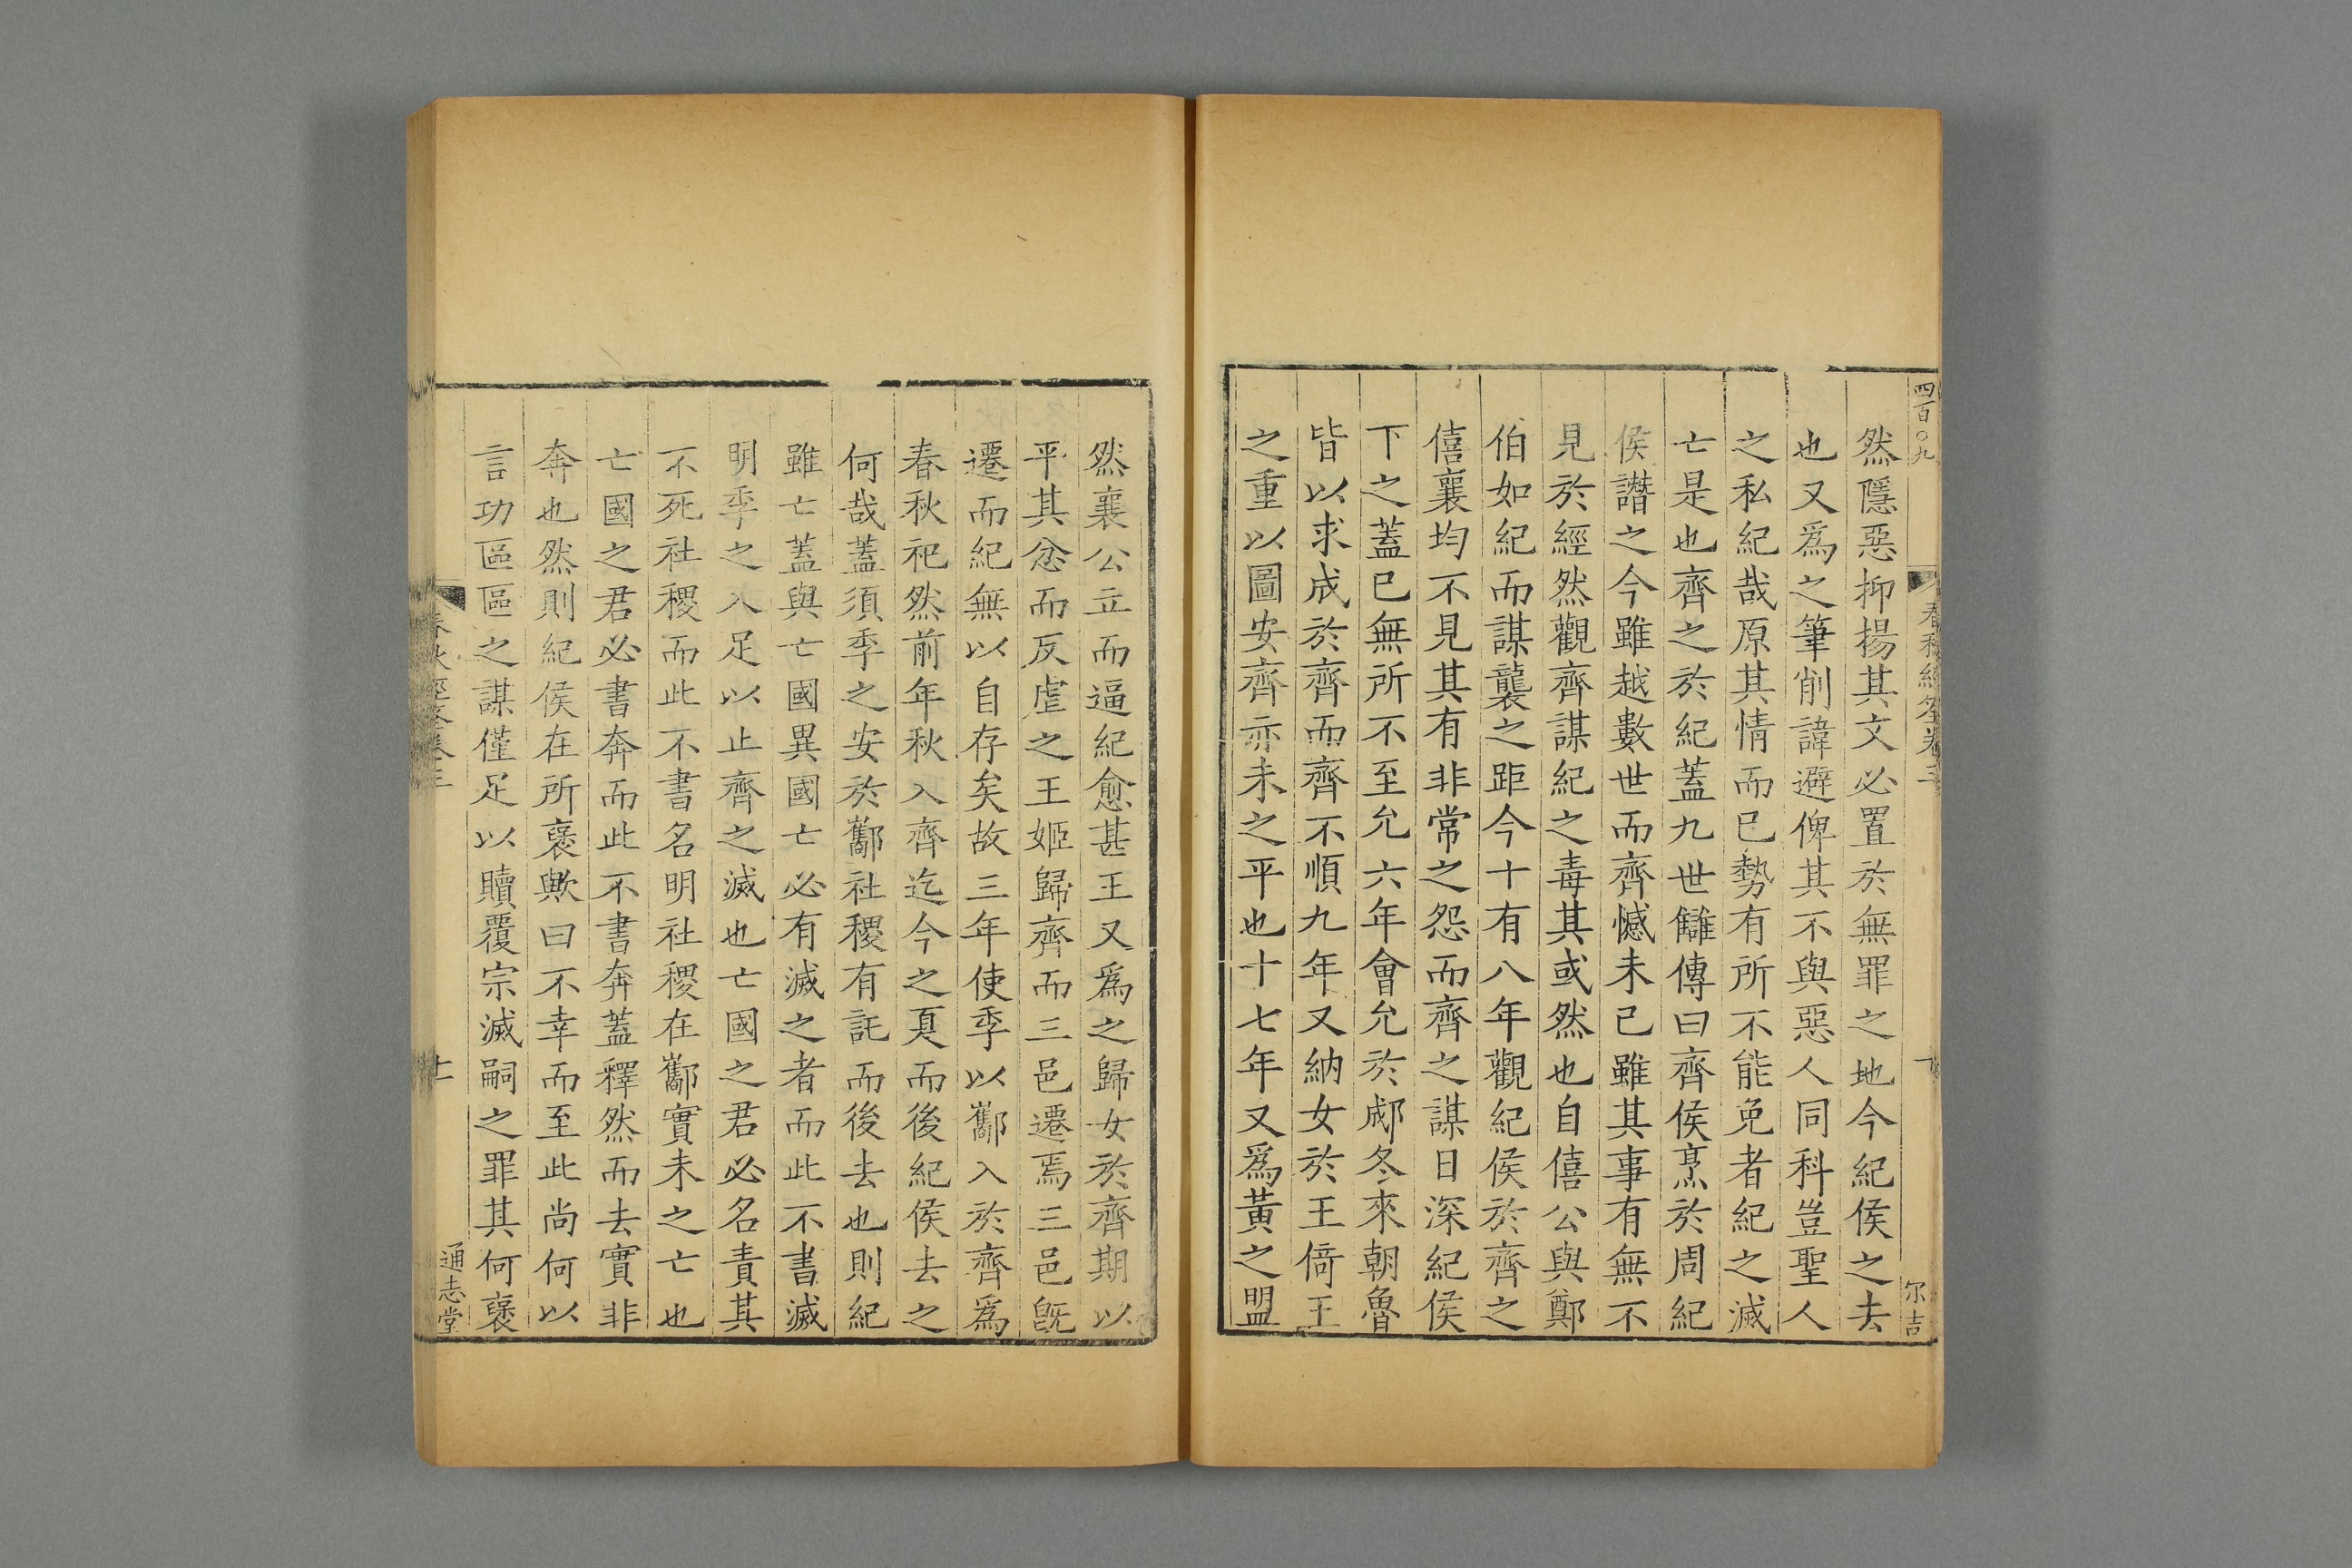 四百〇九
春秋經筌卷三
尔吉
然隱惡抑揚其文必置於無罪之地今紀侯之去
也又爲之筆削諱避俾其不與惡人同科豈聖人
之私紀哉原其情而已勢有所不能免者紀之滅
亡是也齊之於紀蓋九世讎傳曰齊侯烹於周紀
侯譖之今雖越數世而齊憾未已雖其事有無不
見於經然觀齊謀紀之毒其或然也自僖公與鄭
伯如紀而謀襲之距今十有八年觀紀侯於齊之
僖襄均不見其有非常之怨而齊之謀日深紀侯
下之蓋已無所不至允六年會允於郕冬來朝魯
皆以求成於齊而齊不順九年又納女於王倚王
之重以圖安齊亦未之平也十七年又爲黃之盟
然襄公立而逼紀愈甚王又爲之歸女於齊期以
平其忿而反虐之王姬歸齊而三邑遷焉三邑旣
遷而紀無以自存矣故三年使季以酅入於齊爲
春秋祀然前年秋入齊迄今之夏而後紀侯去之
何哉蓋須季之安於酅社稷有託而後去也則紀
雖亡蓋與亡國異國亡必有滅之者而此不書滅
明季之入足以止齊之滅也亡國之君必名責其
不死社稷而此不書名明社稷在酅實未之亡也
亡國之君必書奔而此不書奔蓋釋然而去實非
奔也然則紀侯在所褒歟曰不幸而至此尚何以
言功區區之謀僅足以贖覆宗滅嗣之罪其何褒
春秋經筌卷三
十一
通志堂